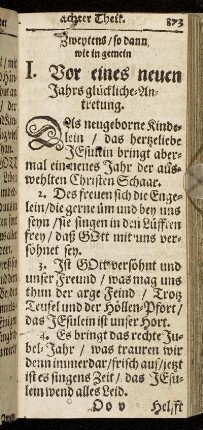 achter Theil. 873
Zweytens / so dann,
wie in gemein
I. Vor eines neuen
Jahrs glückliche An-
tretung.
DAs neugeborne Kinde-
lein / das hertzeliebe
JEsulein bringt aber-
mal ein neues Jahr der aus-
wehlten Christen Schaar.
2. Des freuen sich die Enge-
lein / die gerne üm und bey uns
seyn / sie singen in den Lüfften
frey / daß GOtt mit uns ver-
söhnet sey.
3. Ist GOtt versöhnt und
unser Freund / was mag uns
thun der arge Feind / Trotz
Teufel und der Höllen-Pfort /
das JEsulein ist unser Hort.
4. Es bringt das rechte Ju-
bel-Jahr / was trauren wir
denn immerdar / frisch auf / jetzt
ist es singens Zeit / das JEsu-
lein wend alles Leid.
Oo v Helfft